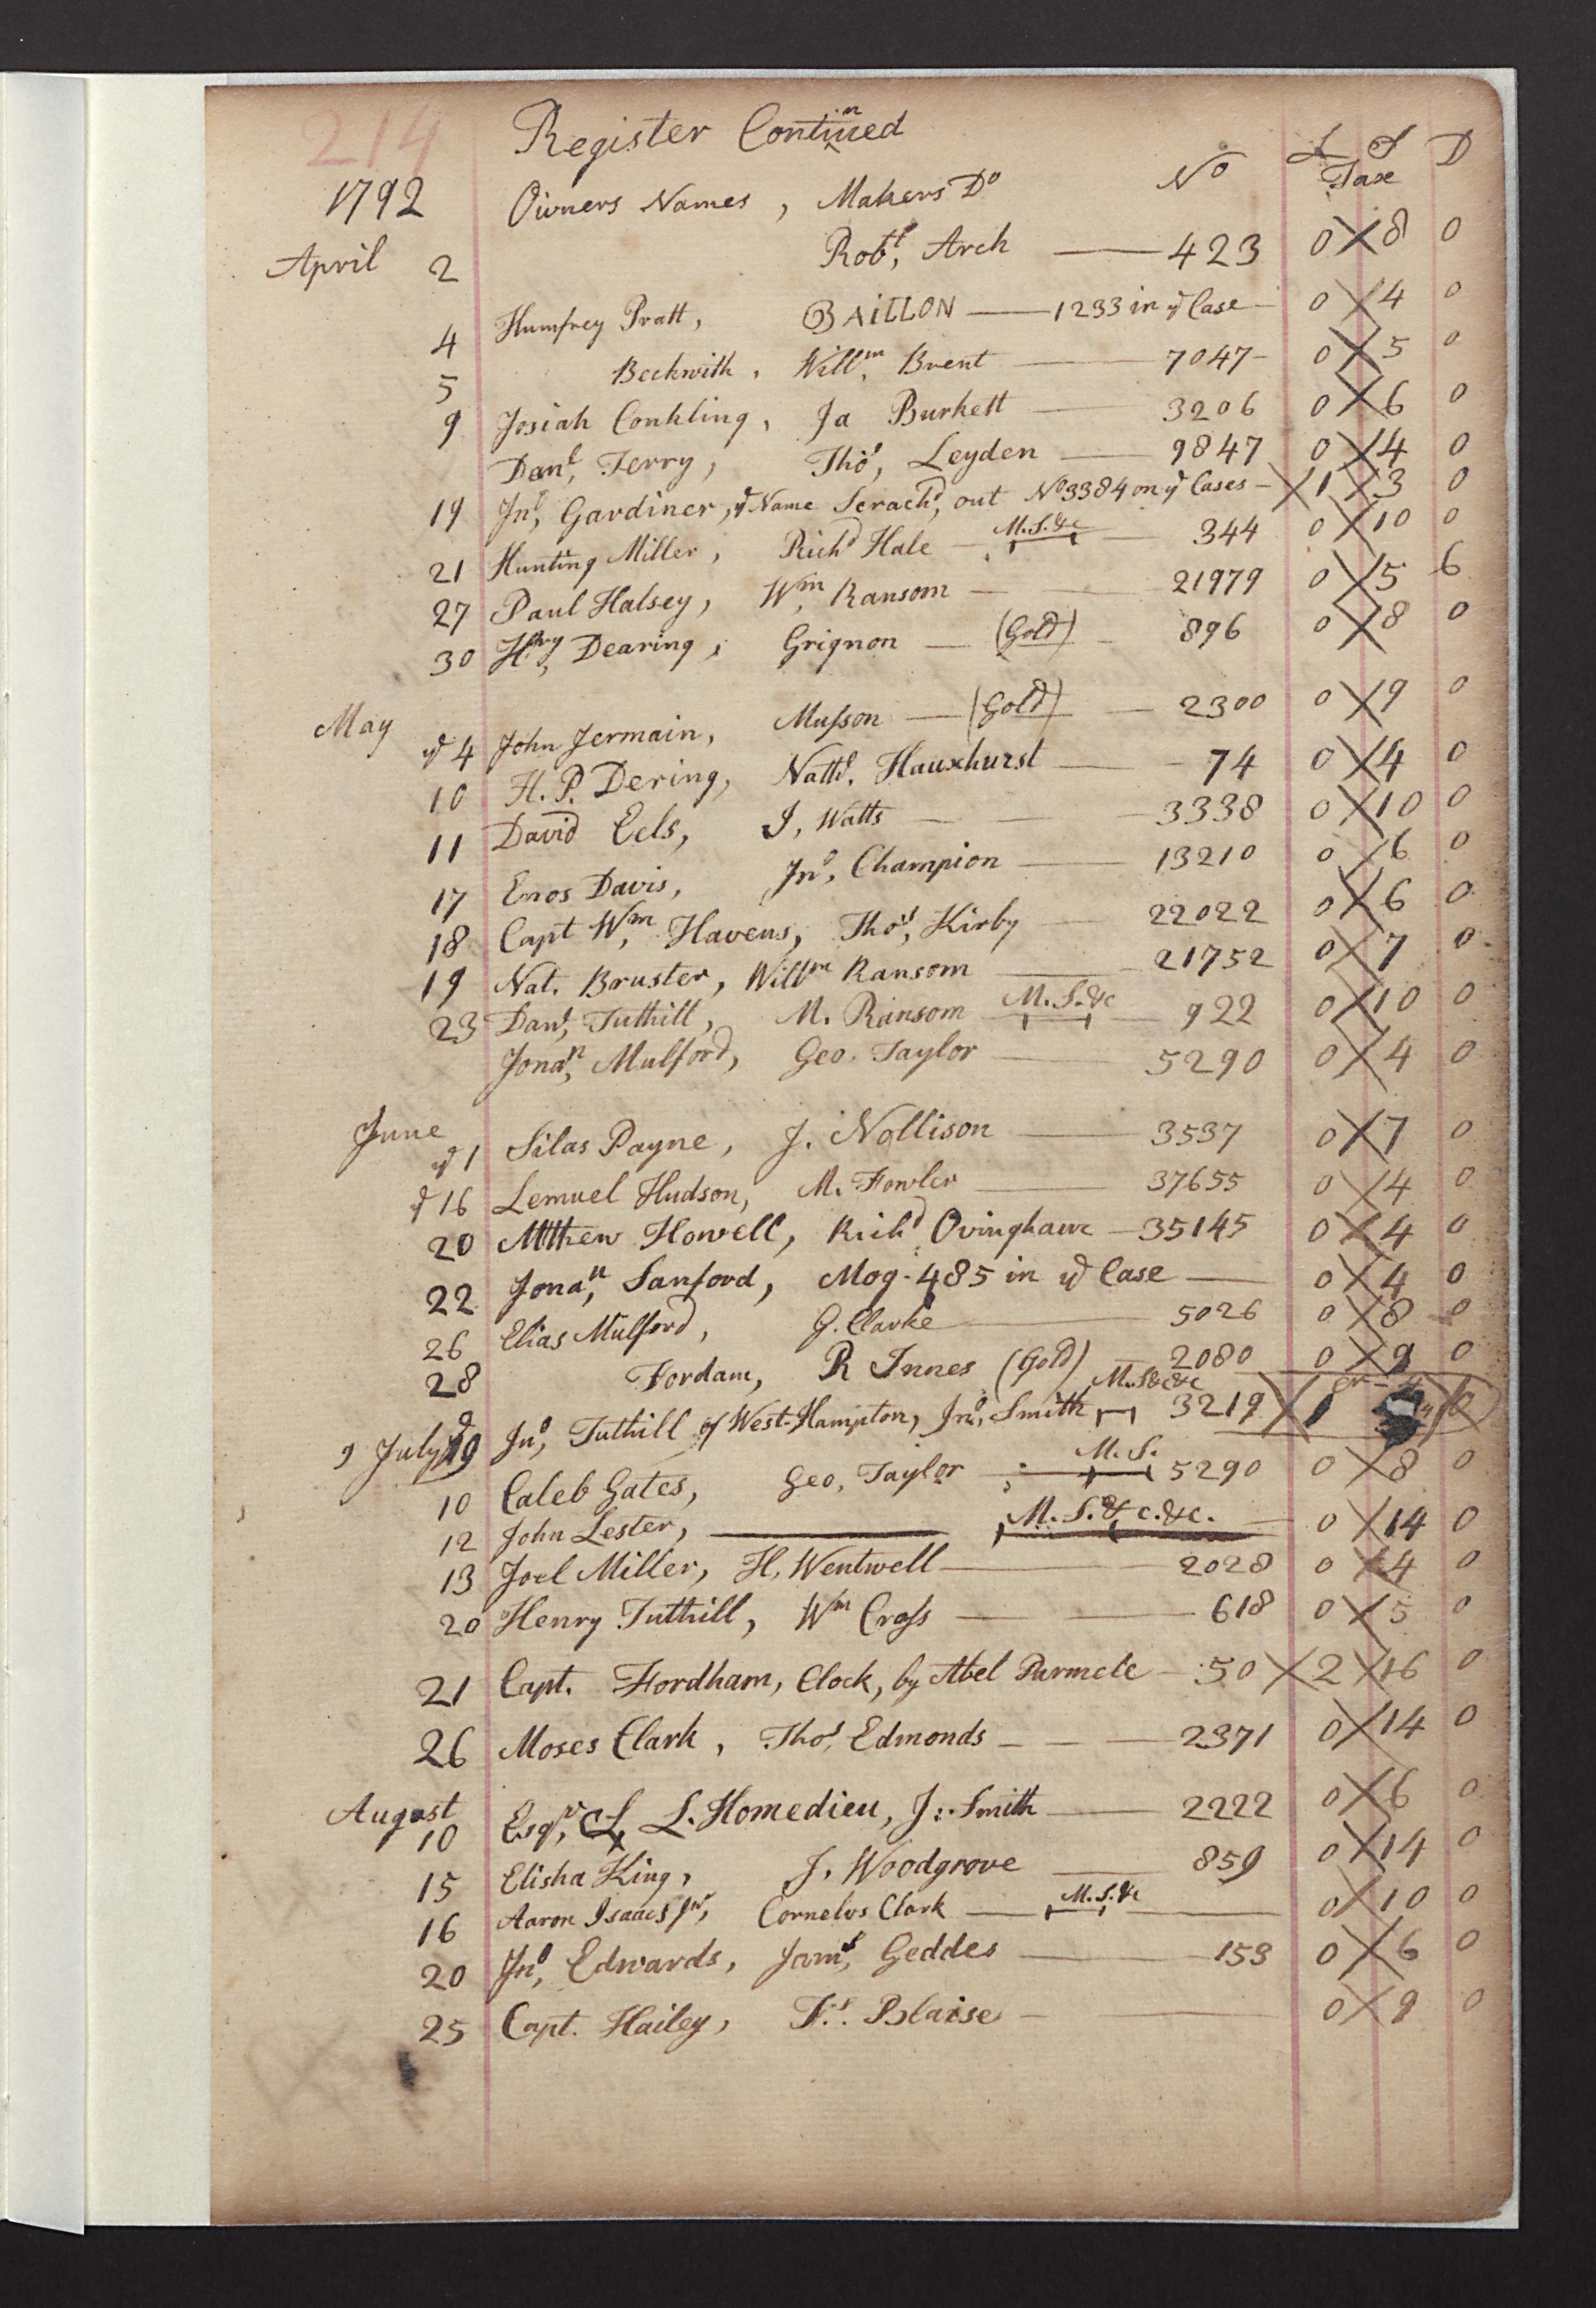 214
Register Continued
1792 Owners Names, Makers Do No £ S D
Tax
April 2 Robt, Arch — 423 0 8 0
4 Humfrey Pratt, BAILLON — 1233 in ye Case 0 4 0
5 Beckwith, Willm, Brent — 7047 0 5 0
9 Josiah Conkling, Ja Burkett — 3206 0 6 0
Danl, Terry, Thos, Leyden — 9847 0 4 0
19 Jno, Gardiner, ye Name Scrachd, out No 3384 on ye Cases — 1 3 0
21 Hunting Miller, Richd Hale — M.S.&c — 344 0 10 0
27 Paul Halsey, Wm, Ransom — 21979 0 5 6
30 Hnry, Dearing, Grignon — (Gold) — 896 0 8 0
May ye 4 John Jermain, Musson — (Gold) — 2300 0 9 0
10 H. P. Dering, Nathl. Hauxhurst — 74 0 4 0
11 David Eels, J, Watts — 3338 0 10 0
17 Enos Davis, Jno, Champion — 13210 0 6 0
18 Capt Wm, Havens, Thos, Kirby — 22022 0 6 0
19 Nat. Bruster, Willm Ransom — 21752 0 7 0
23 Danl, Tuthill, M. Ransom M.S.&c — 922 0 10 0
Jonan, Mulford, Geo. Taylor — 5290 0 4 0
June ye 1 Silas Payne, J. Nollison — 3537 0 7 0
ye 16 Lemuel Hudson, M. Fowler — 37655 0 4 0
20 Mtthew Howell, Richd Ovinghame — 35145 0 4 0
22 Jonan, Sanford, Mog - 485 in ye Case — 0 4 0
26 Elias Mulford, G. Clarke — 5026 0 8 0
28 Fordam, R Innes (Gold) — 2080 0 9 0
9 July ye 9 Jno, Tuthill of West-Hampton, Jno, Smith M.S&c&c 3219 1 0
10 Caleb Gates, Geo, Taylor — M. S. 5290 0 8 0
12 John Lester, — M. S. &c. &c. — 0 14 0
13 Joel Miller, H, Wentwell — 2028 0 4 0
20 Henry Tuthill, Wm Cross — 618 0 5 0
21 Capt. Fordham, Clock, by Abel Parmele — 50 2 16 0
26 Moses Clark, Thos, Edmonds — 2371 0 14 0
August 10 Esqr, L. Homedieu, J: Smith — 2222 0 6 0
15 Elisha King, J. Woodgrove — 859 0 14 0
16 Aaron Isaacs Jnr, Cornelus Clark — M.S.&c — 0 10 0
20 Jno, Edwards, Jams, Geddes — 153 0 6 0
25 Capt. Hailey, Fs. Blaise — 0 9 0